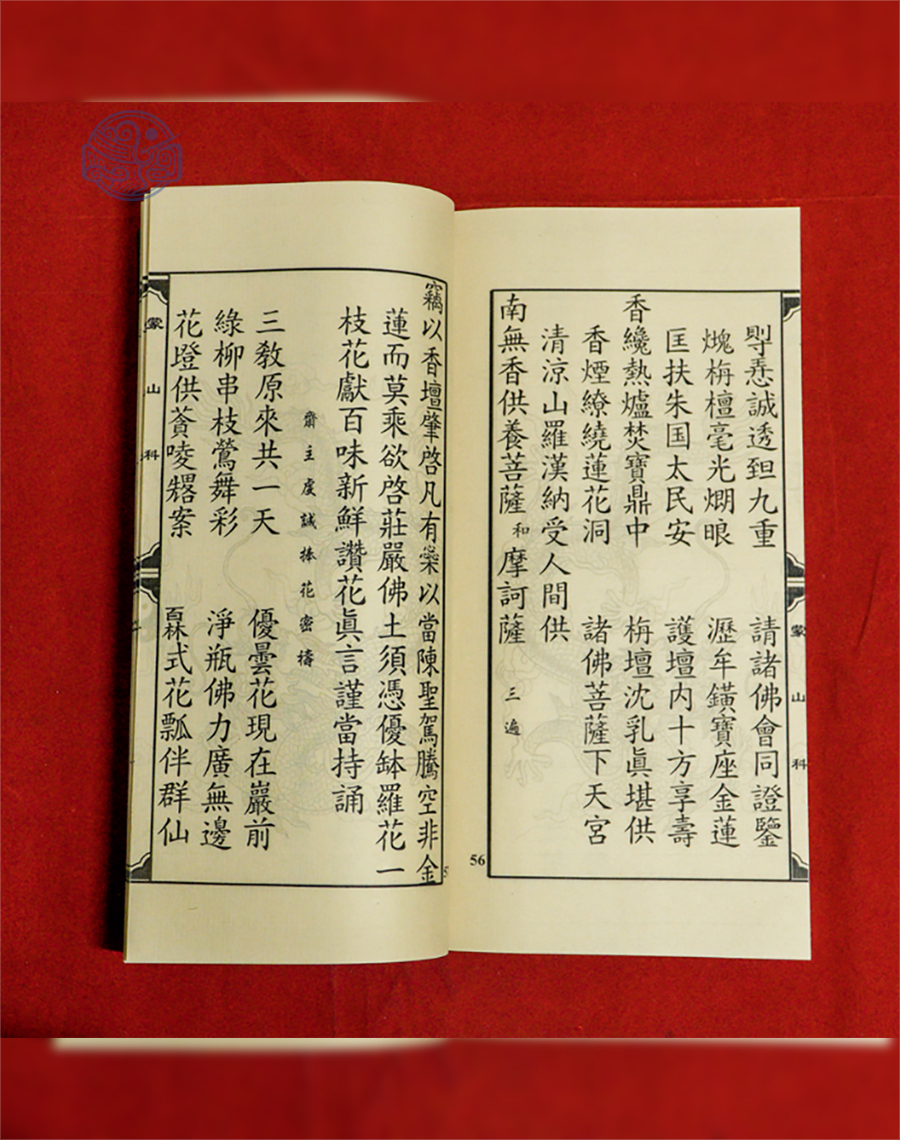 誠透 九重 請諸佛會同證鑒
檀毫光 寶座金蓮
匡扶朱国太民安 護壇內十方享壽
香纔熱爐焚寶鼎中 栴壇沈乳眞堪供
香煙繚繞蓮花洞 諸佛菩薩下天宮
清涼山羅漢納受人間供
南無香供養菩薩 和 摩訶薩 三遍
蒙山科
56
竊以香壇肇啓凡有 以當陳聖駕騰空非金
蓮而莫乘欲啓莊嚴佛土須憑優缽羅花一
枝花獻百味新鮮讚花眞言謹當持誦
齋主虔誠捧花密禱
三教原來共一天 優曇花現在巖前
綠柳串枝鶯舞彩 淨瓶佛力廣無邊
花 供 案 式花瓢伴群仙
蒙山科